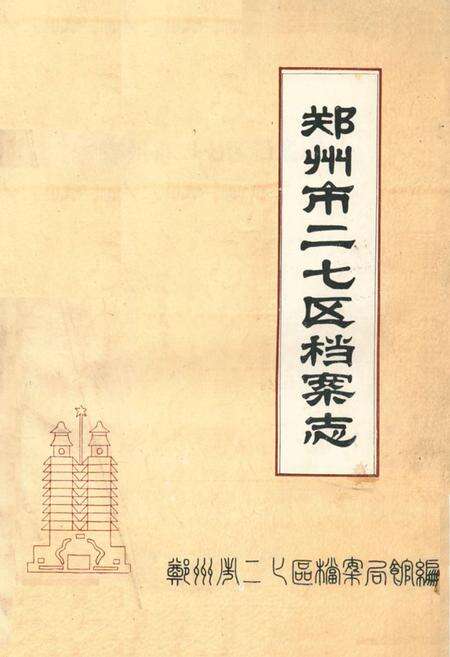 郑州市二七区档案志
鄭州市二七區檔案局館編